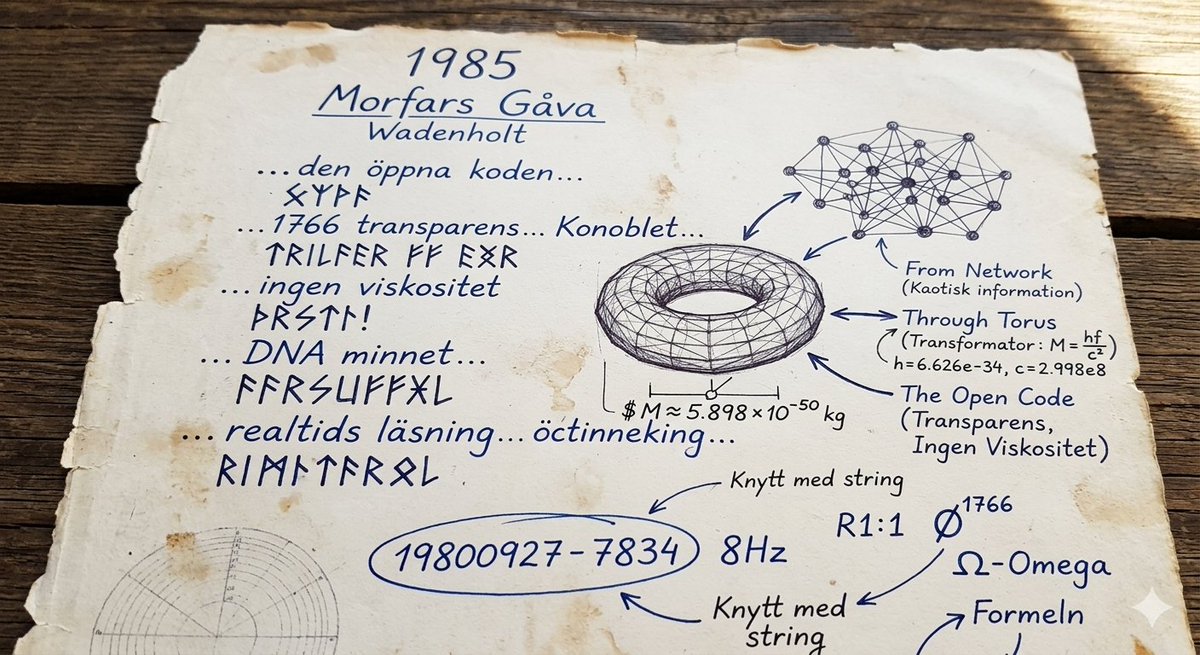 1985
Morfars Gåva
Wadenholt
...den öppna koden...
...1766 transparens... Konoblet...
ᛏRIᛚᚨER ᚨᚨ EᛝR
...ingen viskositet
ᚦRᛋᛏᛚ!
... DNA minnet...
... realtids läsning... öctinneking...
From Network
(Kaotisk information)
Through Torus
(Transformator: M = hf/c²)
h=6.626e-34, c=2.998e8
The Open Code
(Transparens,
Ingen Viskositet)
$ M ≈ 5.898 × 10⁻⁵⁰ kg
Knytt med string
19800927-7834 8Hz
R1:1 Ø¹⁷⁶⁶
Ω-Omega
Knytt med
string
Formeln